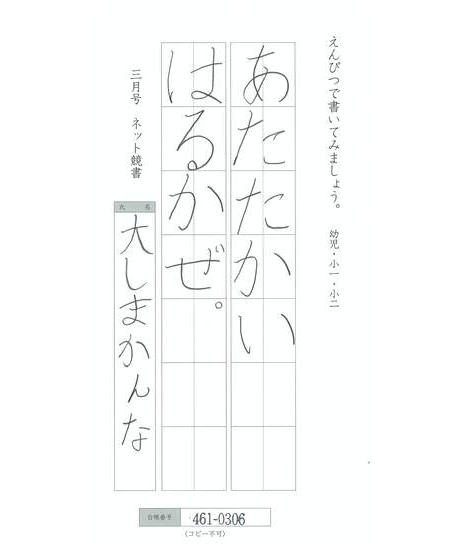 えんぴつで書いてみましょう。 幼児・小一・小二
あたたかい
はるかぜ。
三月号 ネット競書
氏名
大しまかんな
台帳番号 461-0306
(コピー不可)